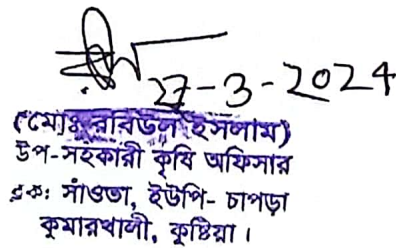 27-3-2024
(মোঃ রবিউল ইসলাম)
উপ-সহকারী কৃষি অফিসার
ব্লক: সাঁওতা, ইউপি- চাপড়া
কুমারখালী, কুষ্টিয়া।